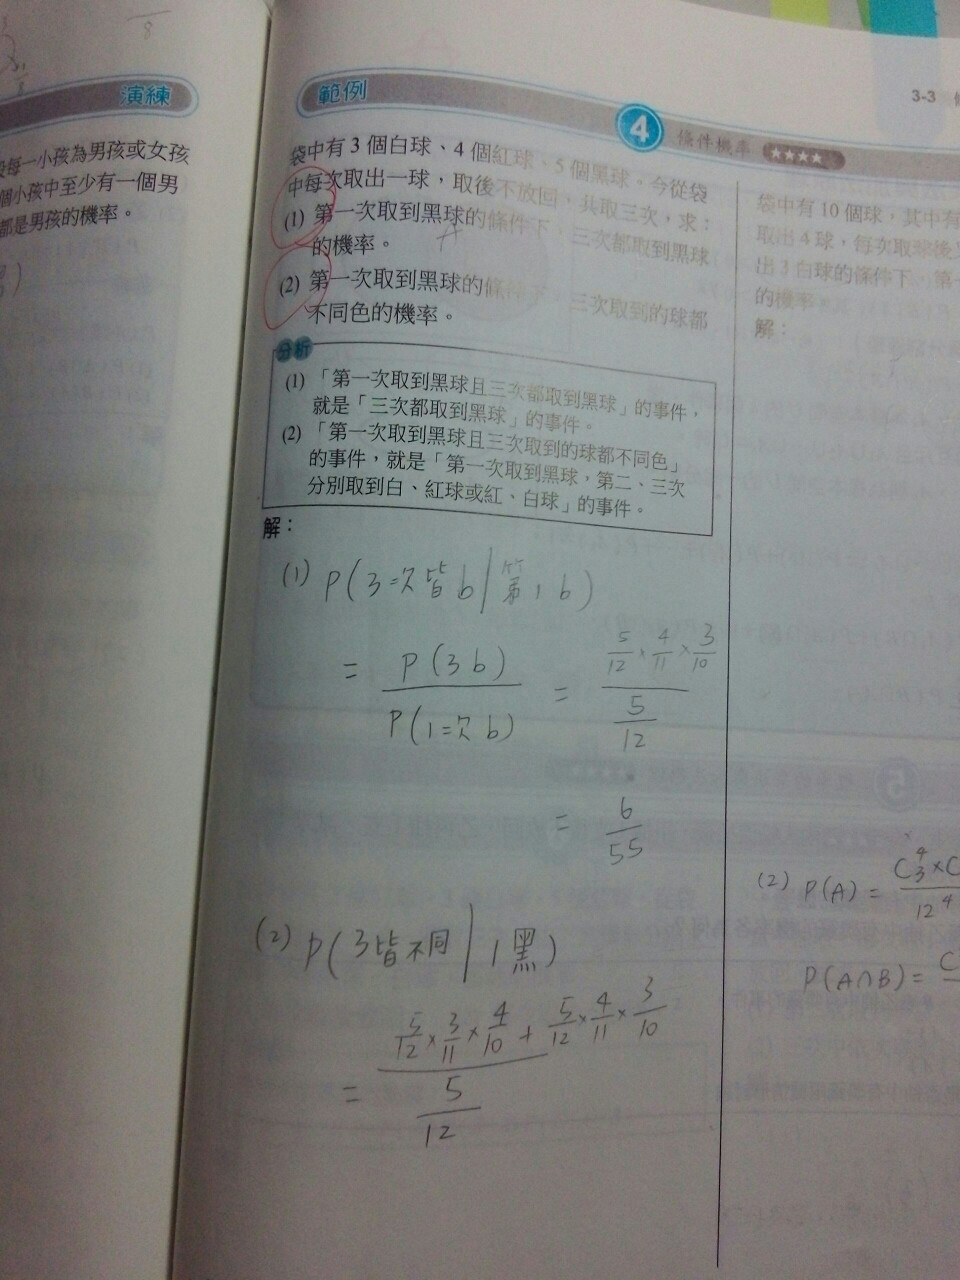 8
演練
每一小孩為男孩或女孩
個小孩中至少有一個男
都是男孩的機率。
3-3
範例
4 條件機率 ★★★★
袋中有3個白球、4個紅球、5個黑球。今從袋
中每次取出一球，取後不放回，共取三次，求：
(1) 第一次取到黑球的條件下，三次都取到黑球
的機率。
A
(2) 第一次取到黑球的條件下，三次取到的球都
不同色的機率。
分析
(1)「第一次取到黑球且三次都取到黑球」的事件，
就是「三次都取到黑球」的事件。
(2)「第一次取到黑球且三次取到的球都不同色」
的事件，就是「第一次取到黑球，第二、三次
分別取到白、紅球或紅、白球」的事件。
解：
(1) P(3次皆b|第1b)
= P(3b) / P(1次b) = 5/12 × 4/11 × 3/10 / 5/12
= 6/55
(2) P(3皆不同|1黑)
= 5/12 × 3/11 × 4/10 + 5/12 × 4/11 × 3/10 / 5/12
袋中有10個球，其中有
取出4球，每次取球後
出3白球的條件下，第一
的機率
解：
(2) P(A) = C⁴₃ × C / 12⁴
P(A∩B) = C